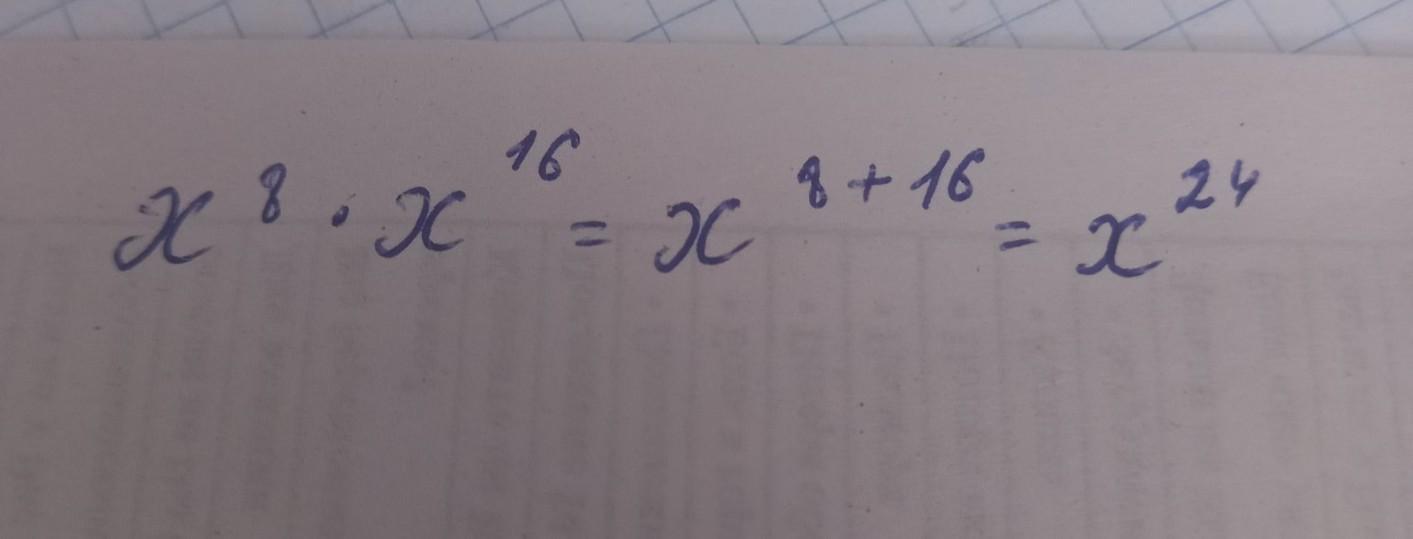 x⁸ · x¹⁶ = x⁸⁺¹⁶ = x²⁴